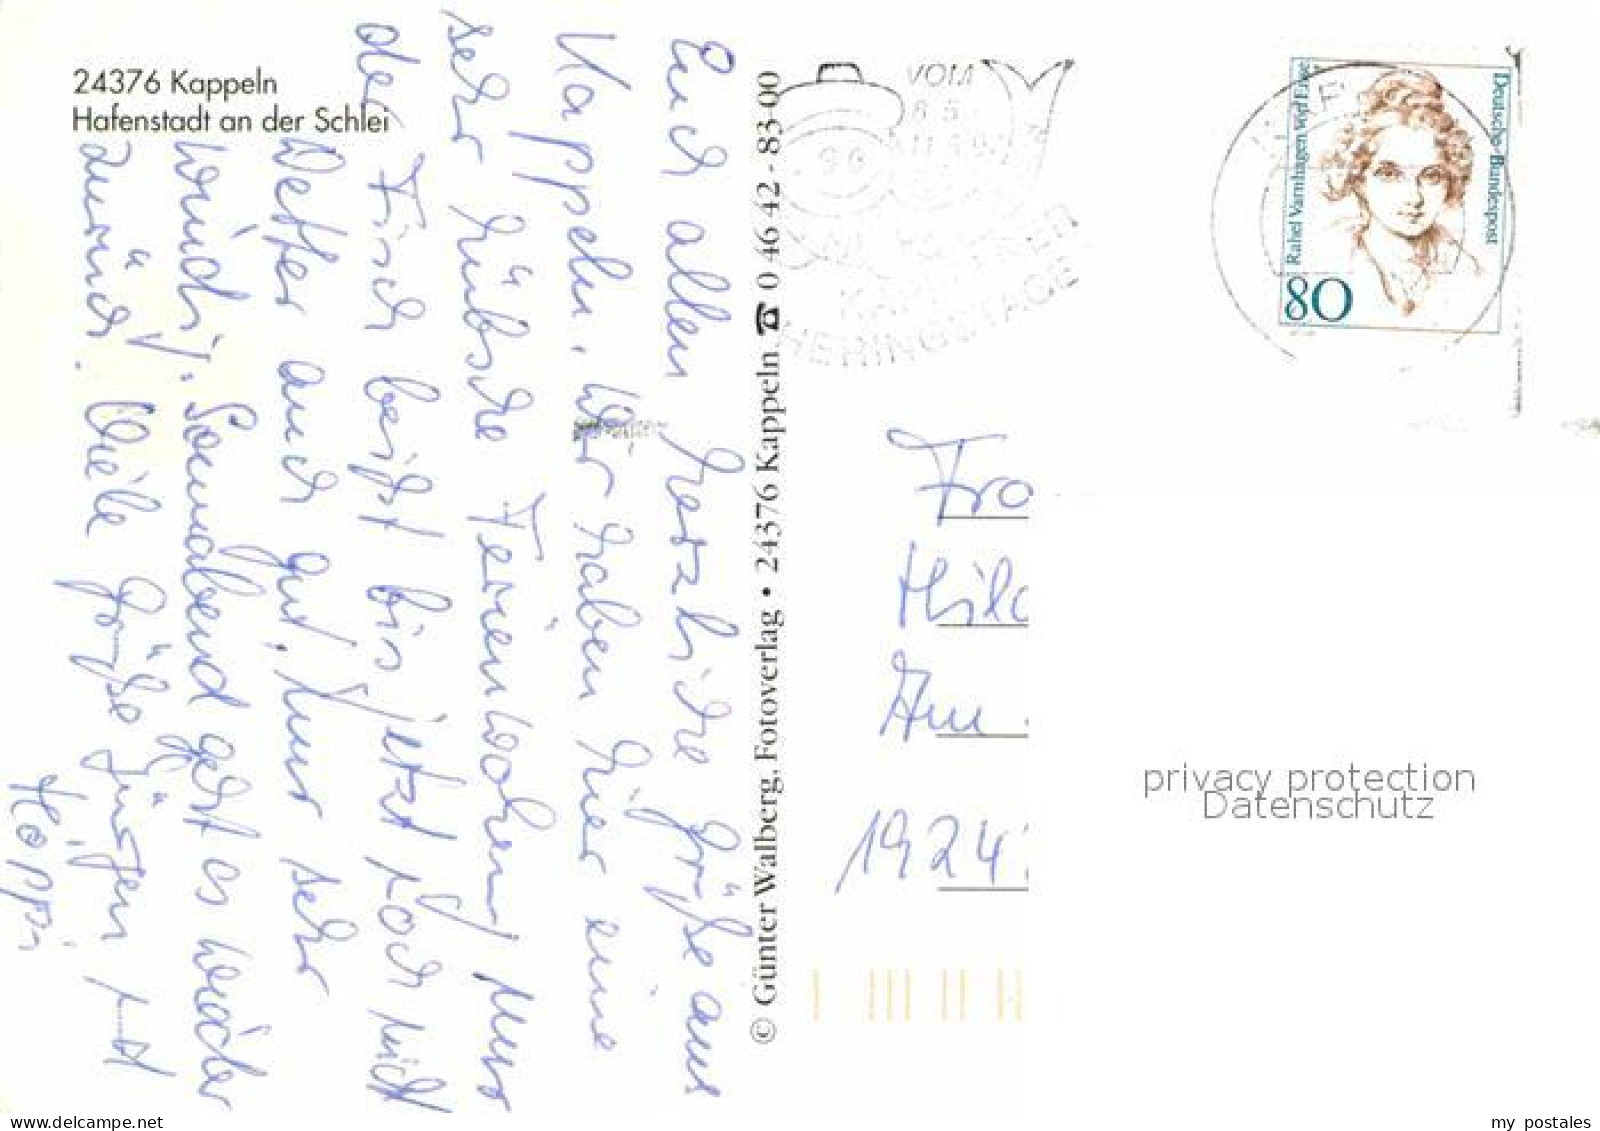 24376 Kappeln
Hafenstadt an der Schlei
Euch allen herzliche Grüße aus
Kappeln. Wir haben hier eine
sehr hübsche Ferienwohnung. Nur
der Fisch beißt bis jetzt noch nicht
Wetter auch gut. Nur sehr
windig. Sonnabend geht es wieder
zurück. Viele Grüße Jürgen
Höppi
© Günter Walberg, Fotoverlag • 24376 Kappeln ☎ 0 46 42 - 83 00
VOM
HERINGSTAGE
Deutsche Bundespost
Rahel Varnhagen von Ense
80
Fra
Hild
Am
1924
privacy protection
Datenschutz
my postales
www.delcampe.net